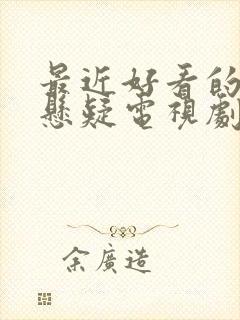 最近好看的
懸疑電視劇
余廣造